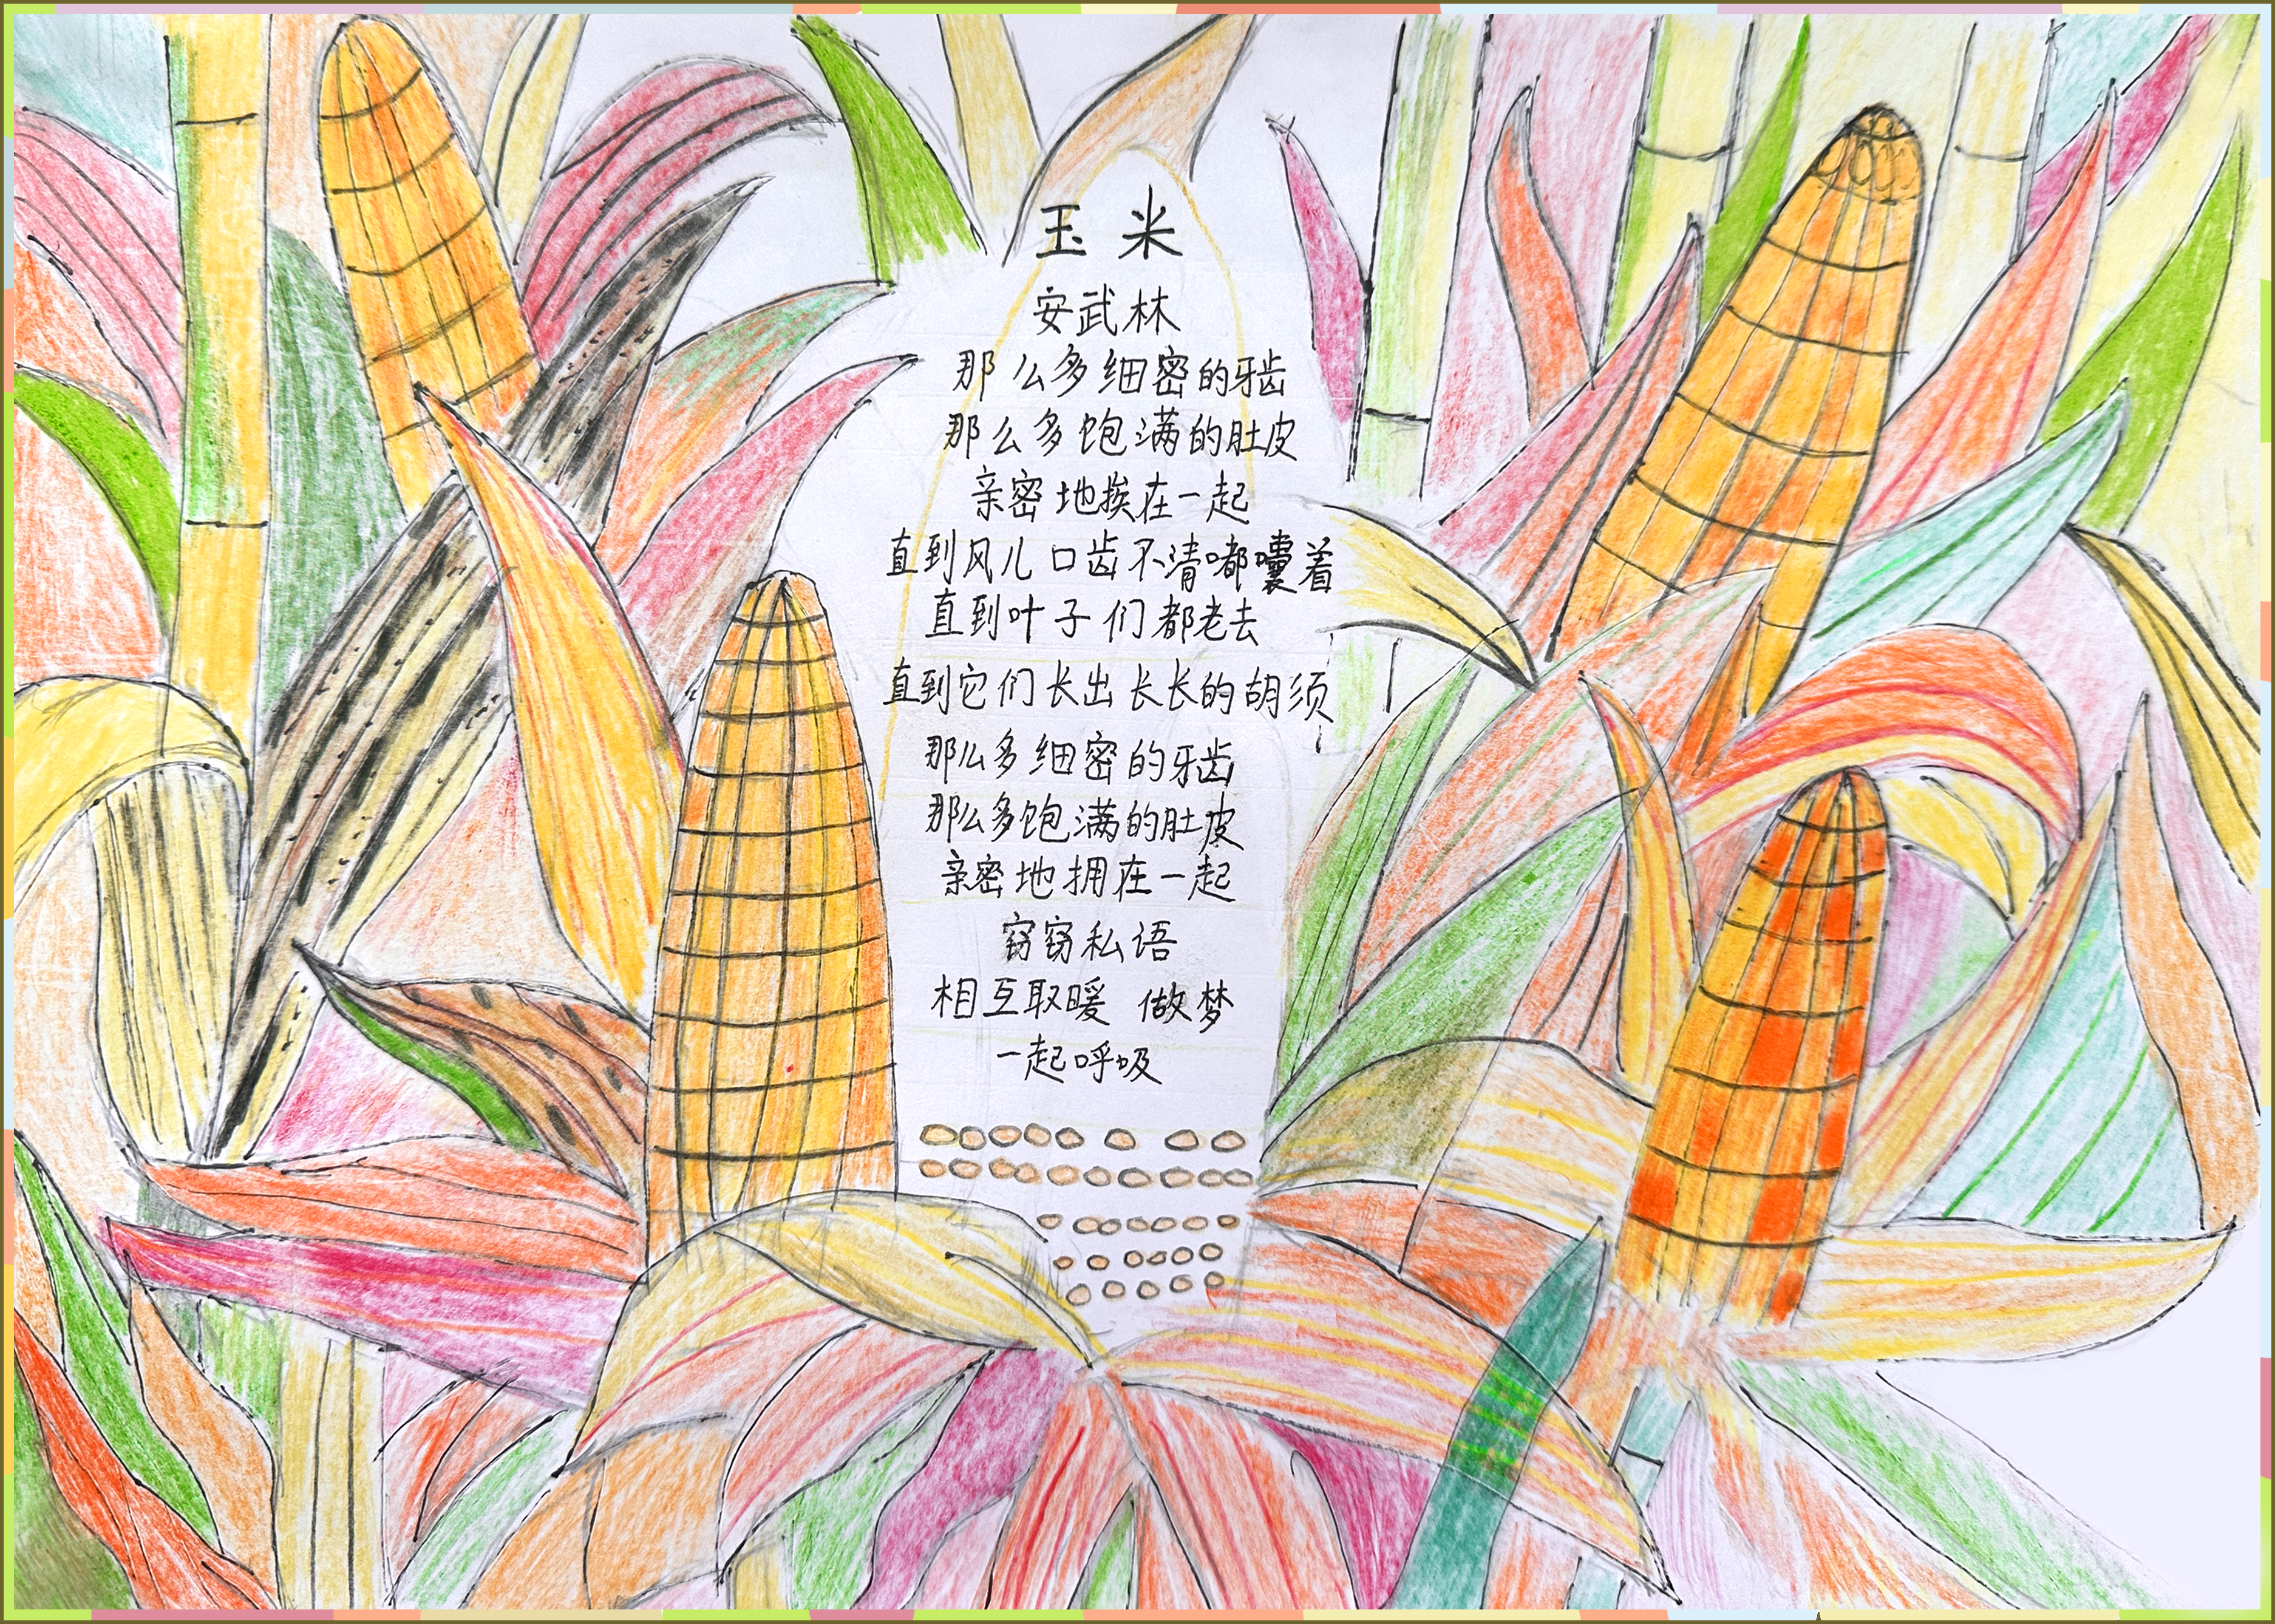 玉米
安武林
那么多细密的牙齿
那么多饱满的肚皮
亲密地挨在一起
直到风儿口齿不清嘟囔着
直到叶子们都老去
直到它们长出长长的胡须
那么多细密的牙齿
那么多饱满的肚皮
亲密地拥在一起
窃窃私语
相互取暖 做梦
一起呼吸